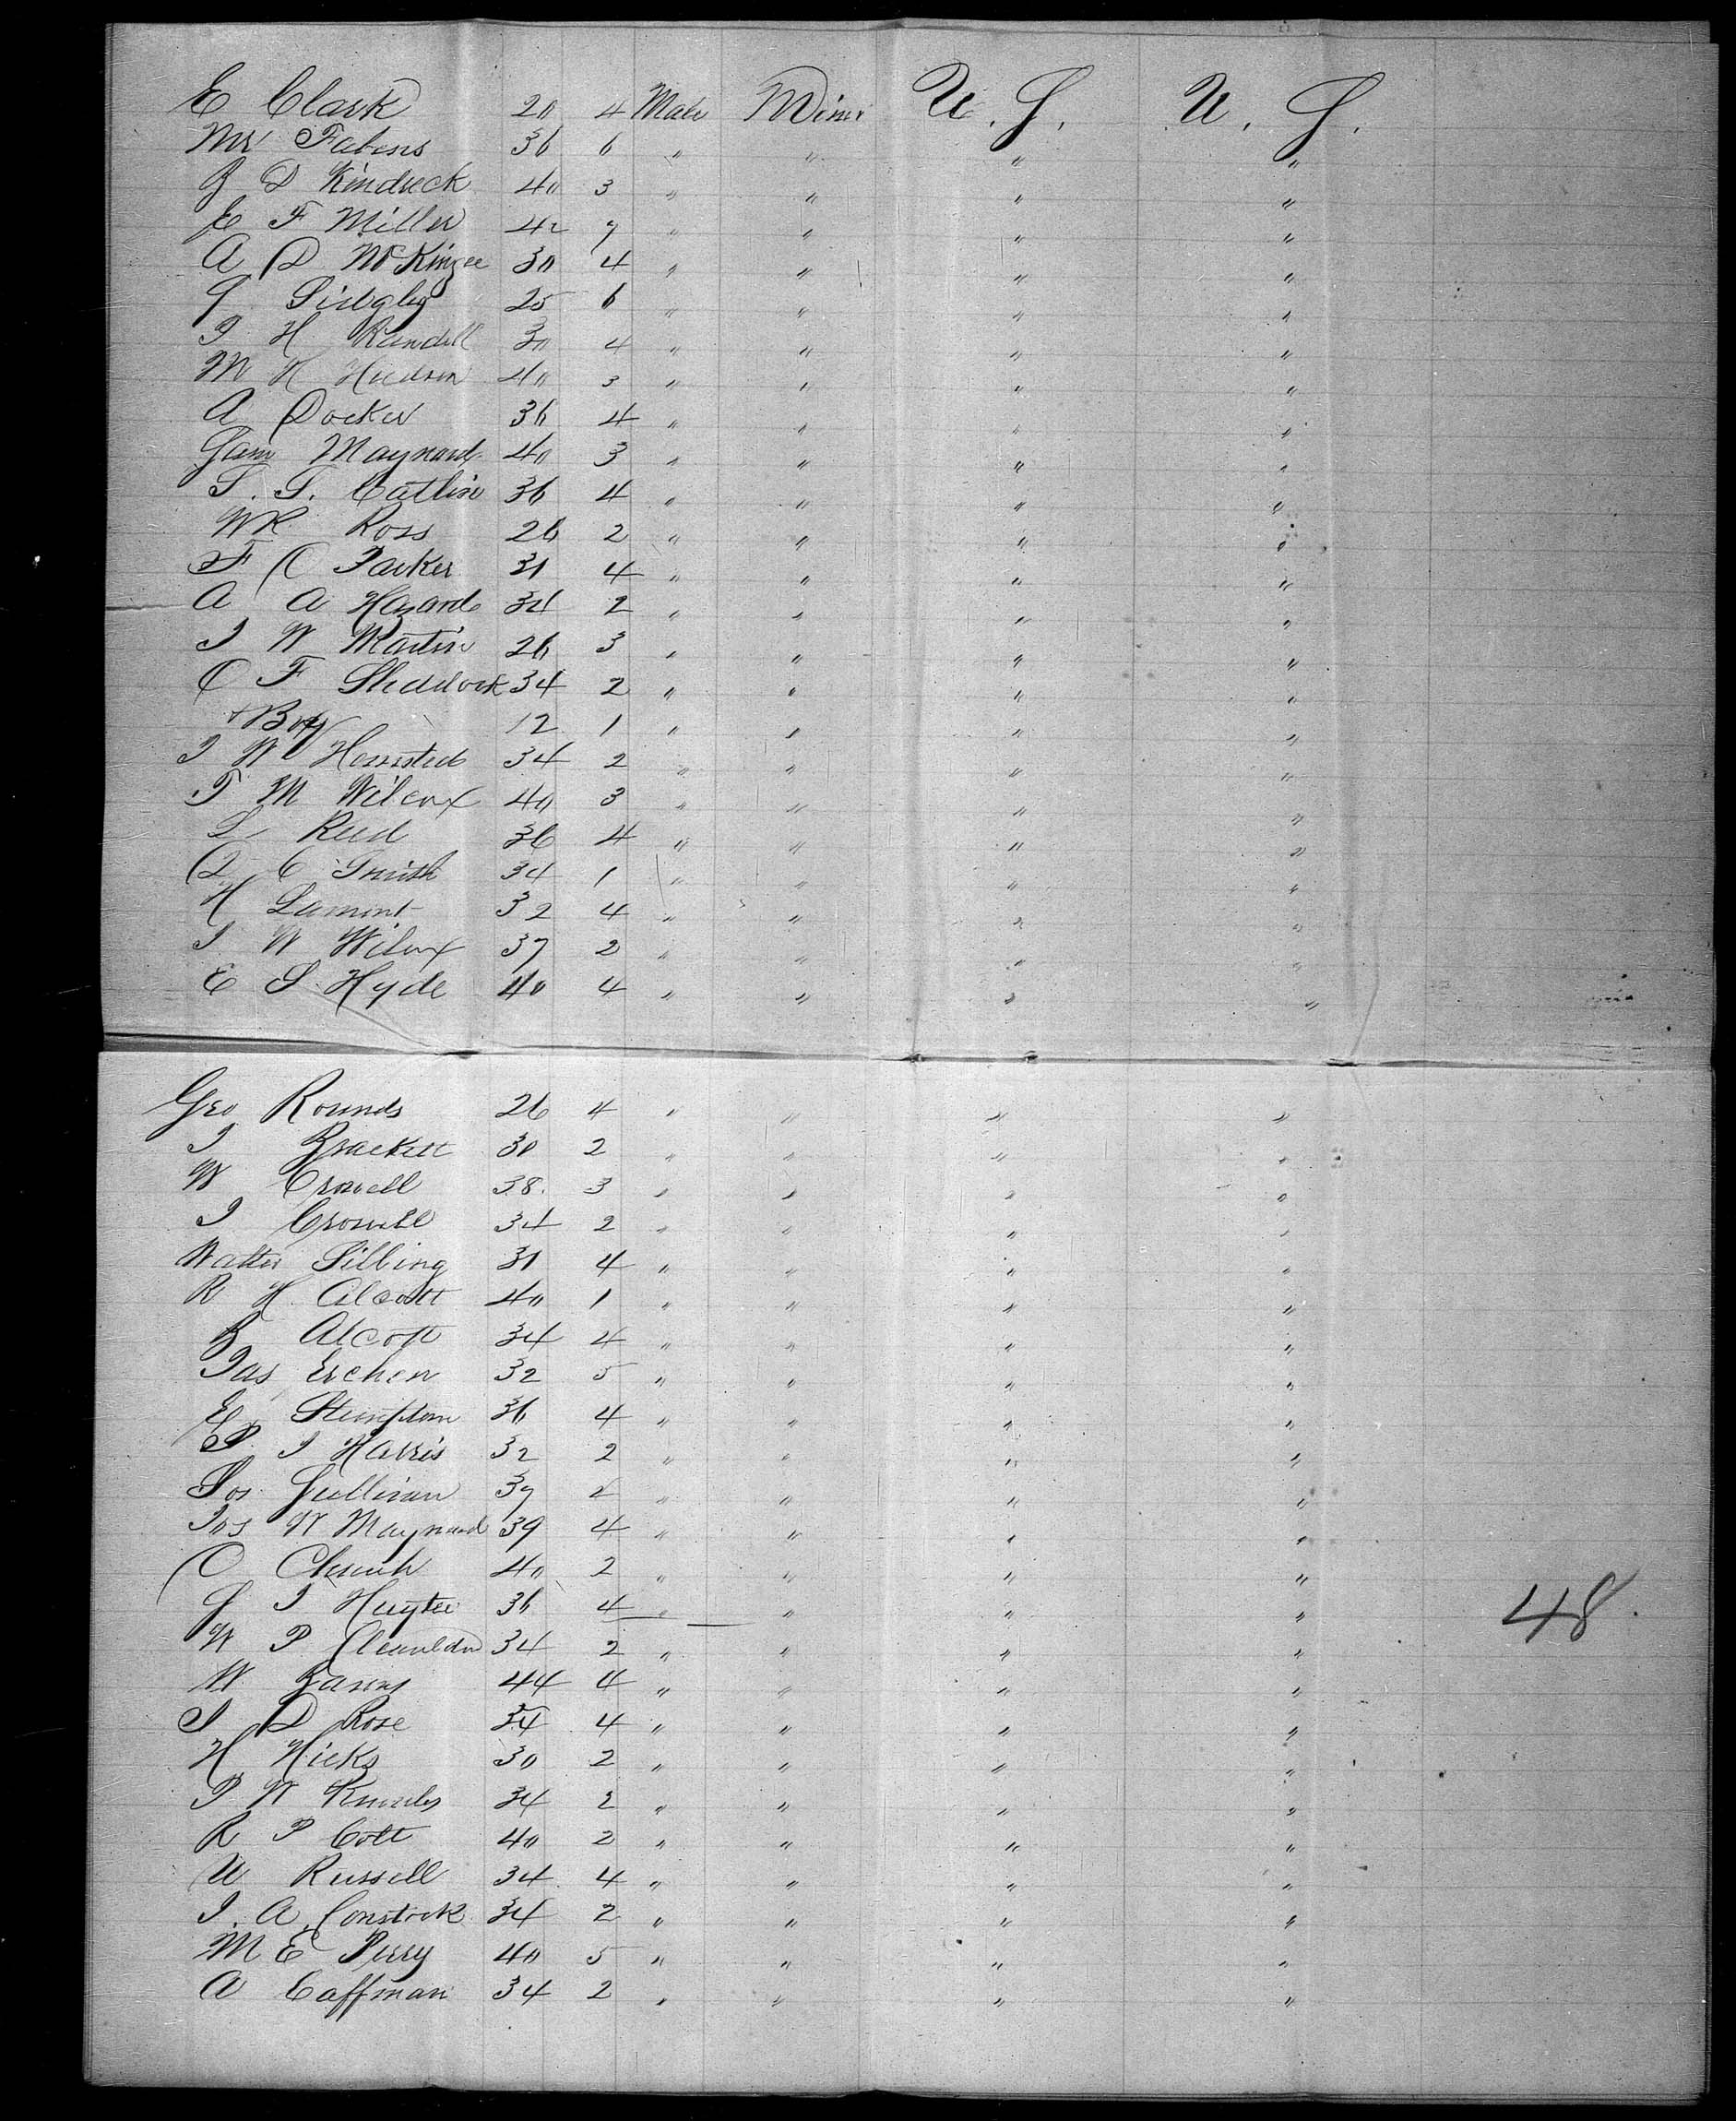 E Clark 20 4 Male Miner U.S. U.S.
Mr Fabens 36 6 " " " "
J D Kindreck 40 3 " " " "
E F Miller 42 7 " " " "
A D McKinzee 30 4 " " " "
25 6 " " " "
J H Randell 30 4 " " " "
M H Hudson 40 3 " " " "
A Docker 36 4 " " " "
Sam Maynard 40 3 " " " "
T. T. Catlin 36 4 " " " "
WR Ross 26 2 " " " "
F C Parker 31 4 " " " "
A A Hazard 34 2 " " " "
J W Martin 26 3 " " " "
C F Sheddock 34 2 " " " "
+ Boy 12 1 " " " "
J W Homsted 34 2 " " " "
T M Wilcox 40 3 " " " "
L Reed 36 4 " " " "
Q C Smith 34 1 " " " "
H Lamont 32 4 " " " "
J W Wilcox 37 2 " " " "
E S Hyde 40 4 " " " "
Geo Rounds 26 4 " " " "
J Brackett 30 2 " " " "
W Crowell 38 3 " " " "
J Crowell 34 2 " " " "
Walter Silbing 31 4 " " " "
R H Alcott 40 1 " " " "
B Alcott 34 4 " " " "
Jas Erchen 32 5 " " " "
E Stumpton 36 4 " " " "
P J Harris 32 2 " " " "
Sullivan 37 2 " " " "
Jos W Maynard 39 4 " " " "
C Church 40 2 " " " "
S J Huytee 36 4 " " " " 48
W P 34 2 " " " "
W 44 4 " " " "
J D Rose 34 4 " " " "
H Hicks 30 2 " " " "
P W Knowles 34 2 " " " "
R P Colt 40 2 " " " "
U Russell 34 4 " " " "
J. A. Constock 34 2 " " " "
M E Perry 40 5 " " " "
A Caffman 34 2 " " " "